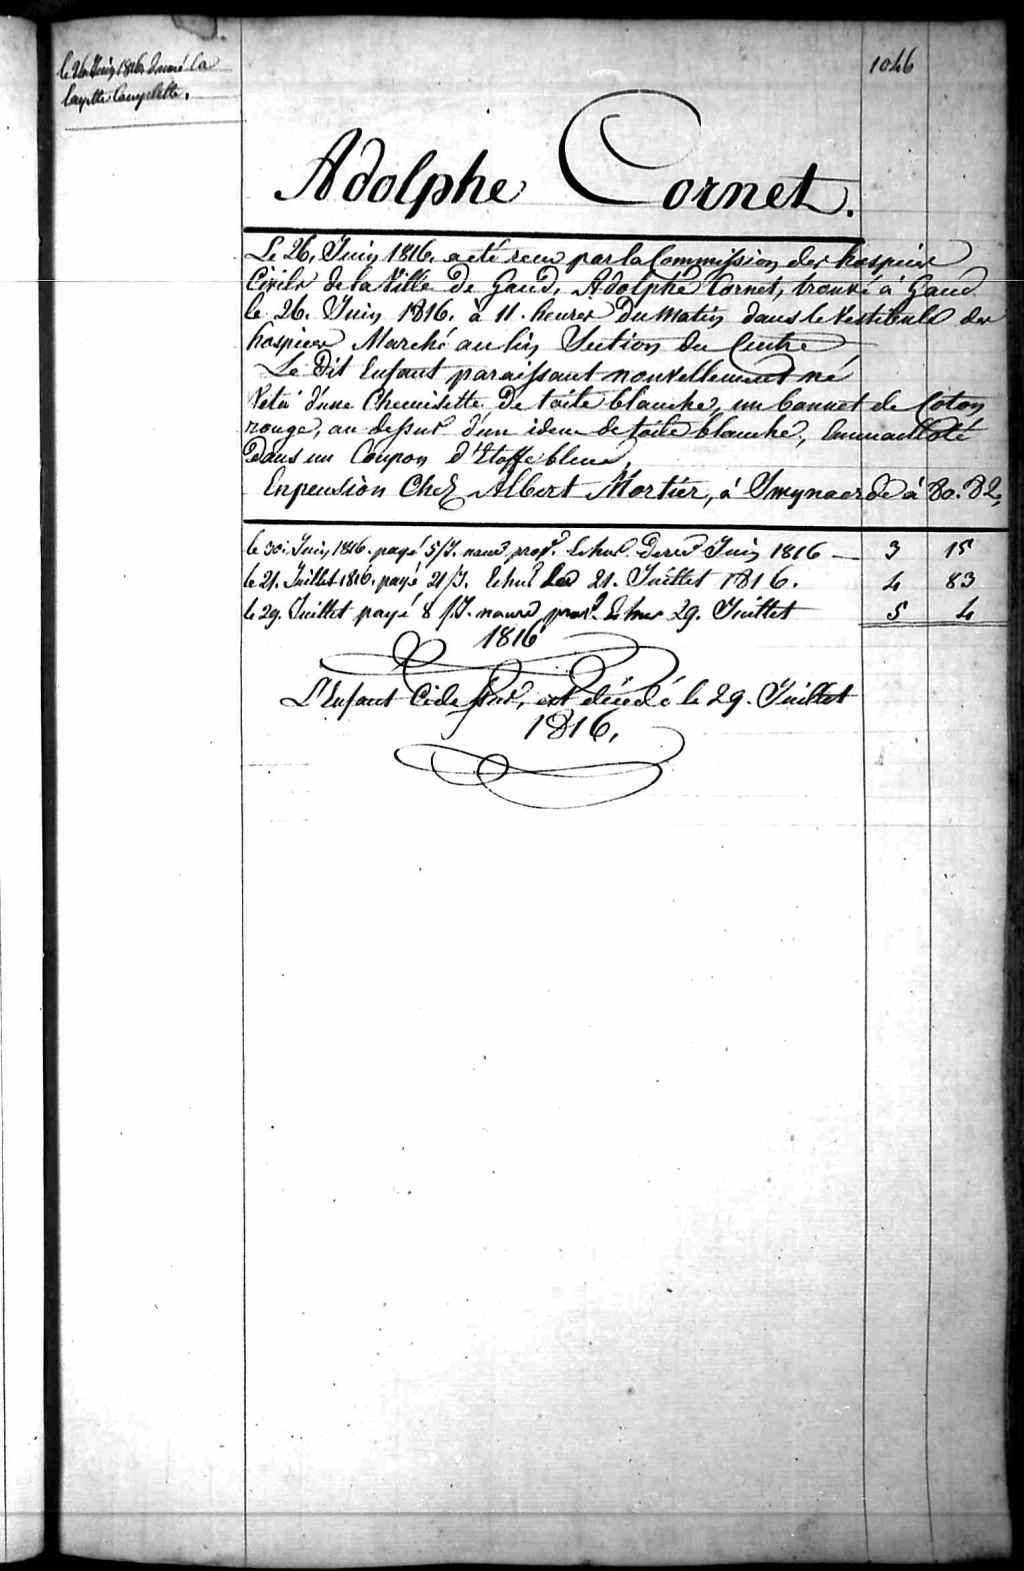 le 26 Juin 1816 donné la
layette Complette.
1046
Adolphe Cornet.
Le 26. Juin 1816. a eté recu par la Commission des hospices
Civils de la Ville de Gand, Adolphe Cornet, trouvé à Gand
le 26. Juin 1816. à 11. heures Du Matin dans le Vestibule des
hospices Marché au lin Section du Centre
Le Dit Enfant paraissant nouvellement né
Vetu d'une Chemisette De toile blanche, un bonnet de Coton
rouge, au dessus d'un idem de toile blanche, Emmailloté
Dans un Coupon d'Etoffe bleue
En pension Chez Albert Mortier, à Swynaerde à 80. 82,
le 30. Juin 1816. payé 5/J. Juin 1816 3 15
le 21. Juillet 1816. payé 21/J. Echus Les 21. Juillet 1816. 4 83
le 29. Juillet payé 8 /J. 29. Juillet 5 4
1816
L'Enfant Cidessus, est décédé le 29. Juillet
1816.